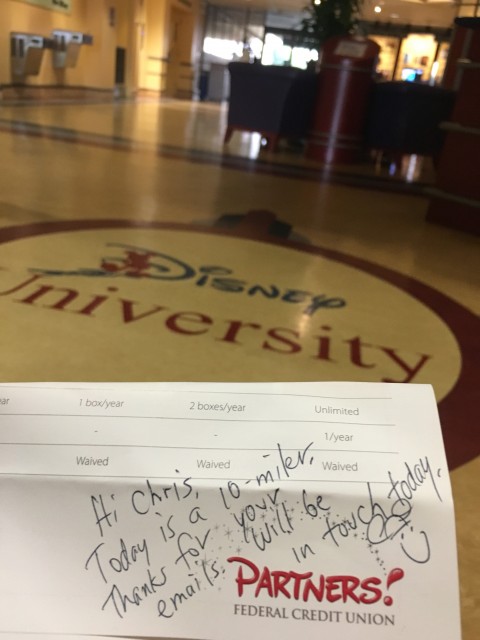 Disney
University
ar 1 box/year 2 boxes/year Unlimited
- - 1/year
Waived Waived Waived
Hi Chris,
Today is a 10-miler.
Thanks for your
emails. Will be
in touch today.
PARTNERS!
FEDERAL CREDIT UNION